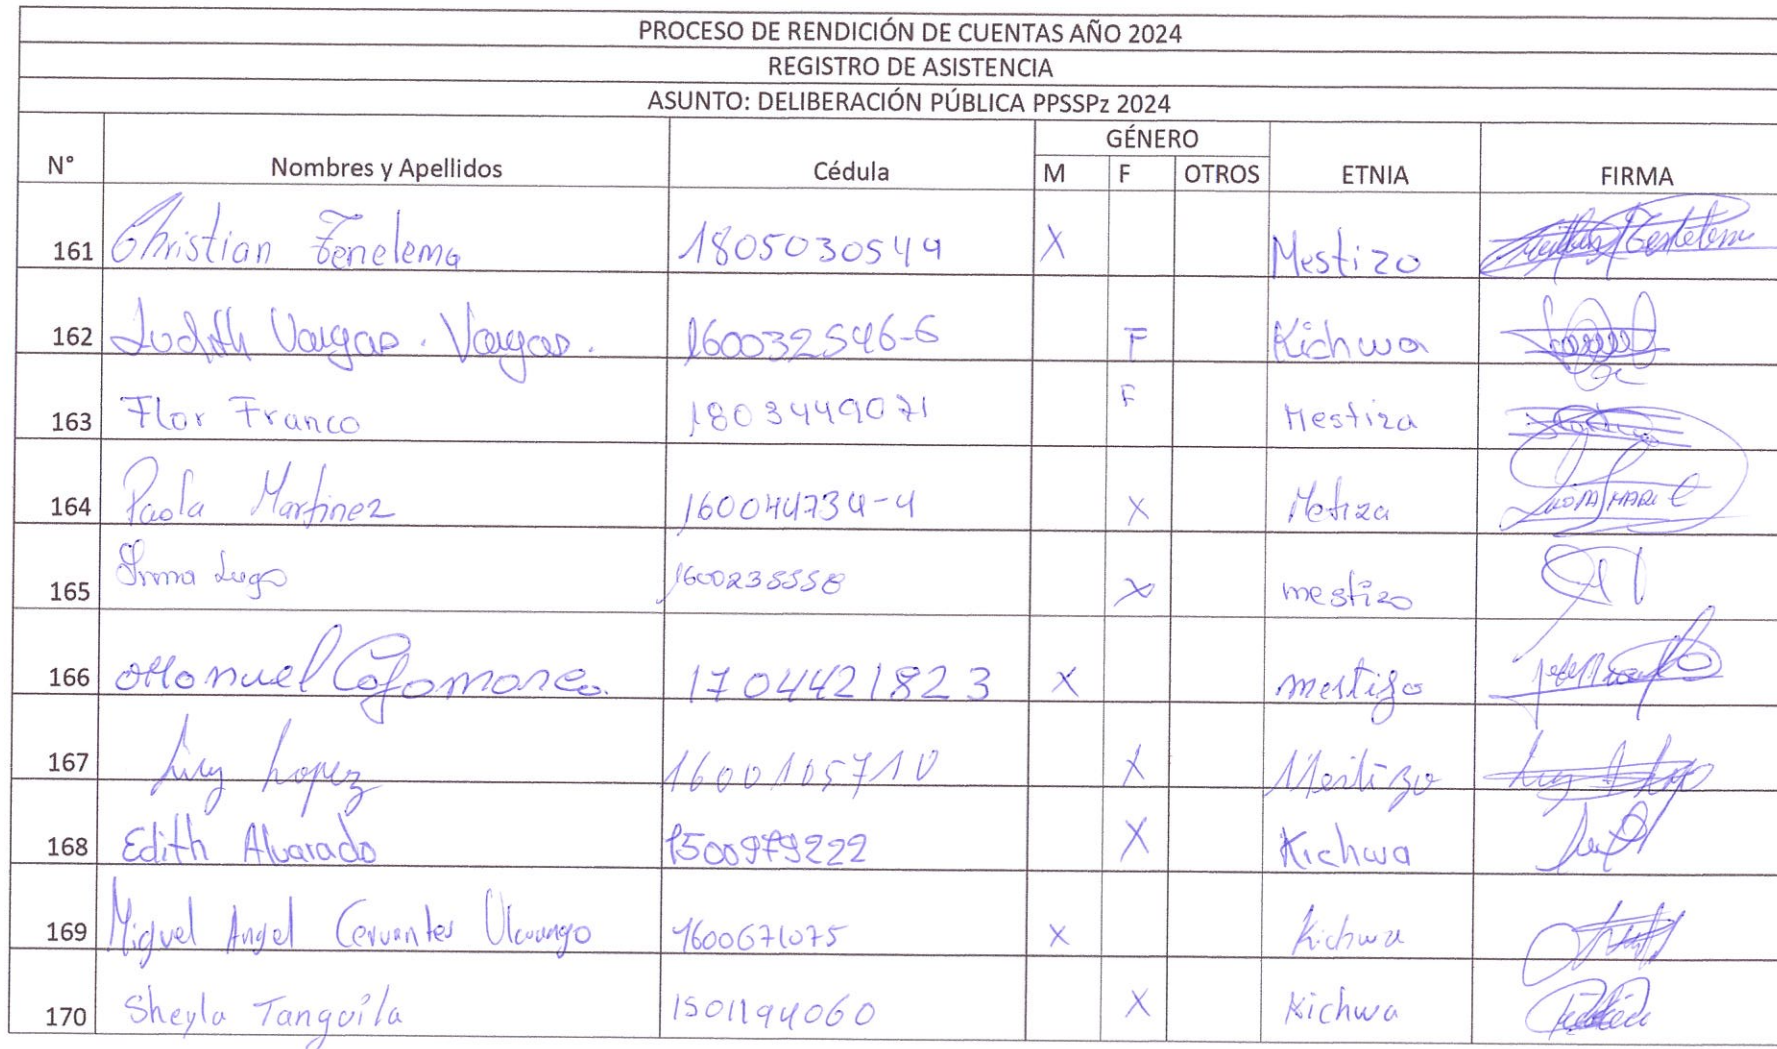 PROCESO DE RENDICIÓN DE CUENTAS AÑO 2024
REGISTRO DE ASISTENCIA
ASUNTO: DELIBERACIÓN PÚBLICA PPSSPz 2024
N° Nombres y Apellidos Cédula GÉNERO M F OTROS ETNIA FIRMA
161 Christian Tenelema 1805030549 X Mestizo
162 Judith Vargas. Vargas. 160032546-6 F Kichwa
163 Flor Franco 1803449071 F Mestiza
164 Paola Martinez 160044734-4 X Metiza
165 Irma Lugo 1600235558 X mestizo
166 1704421823 X mestizo
167 Luz Lopez 1600105710 X Mestizo
168 Edith Alvarado 1500979222 X Kichwa
169 Miguel Angel Cervantes 1600671075 X Kichwa
170 Sheyla Tanguila 1501194060 X Kichwa